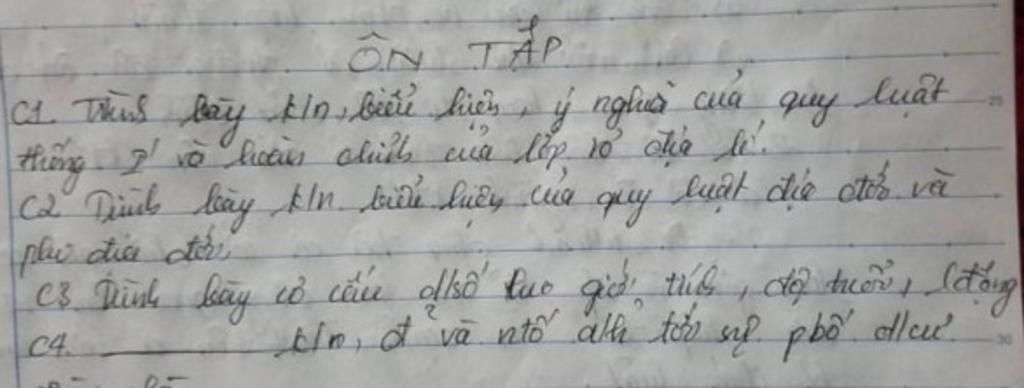 ÔN TẬP
C1. Trình bày k/n, biểu hiện, ý nghĩa của quy luật
thống I' và hoàn chỉnh của lớp vỏ địa lí.
C2 Trình bày k/n biểu hiện của quy luật địa đới và
phi địa đới,
C3 Trình bày cơ cấu d/số theo giới tính, độ tuổi, lđộng
C4. k/n, đ² và ntố ảh tới sự pbố d/cư.